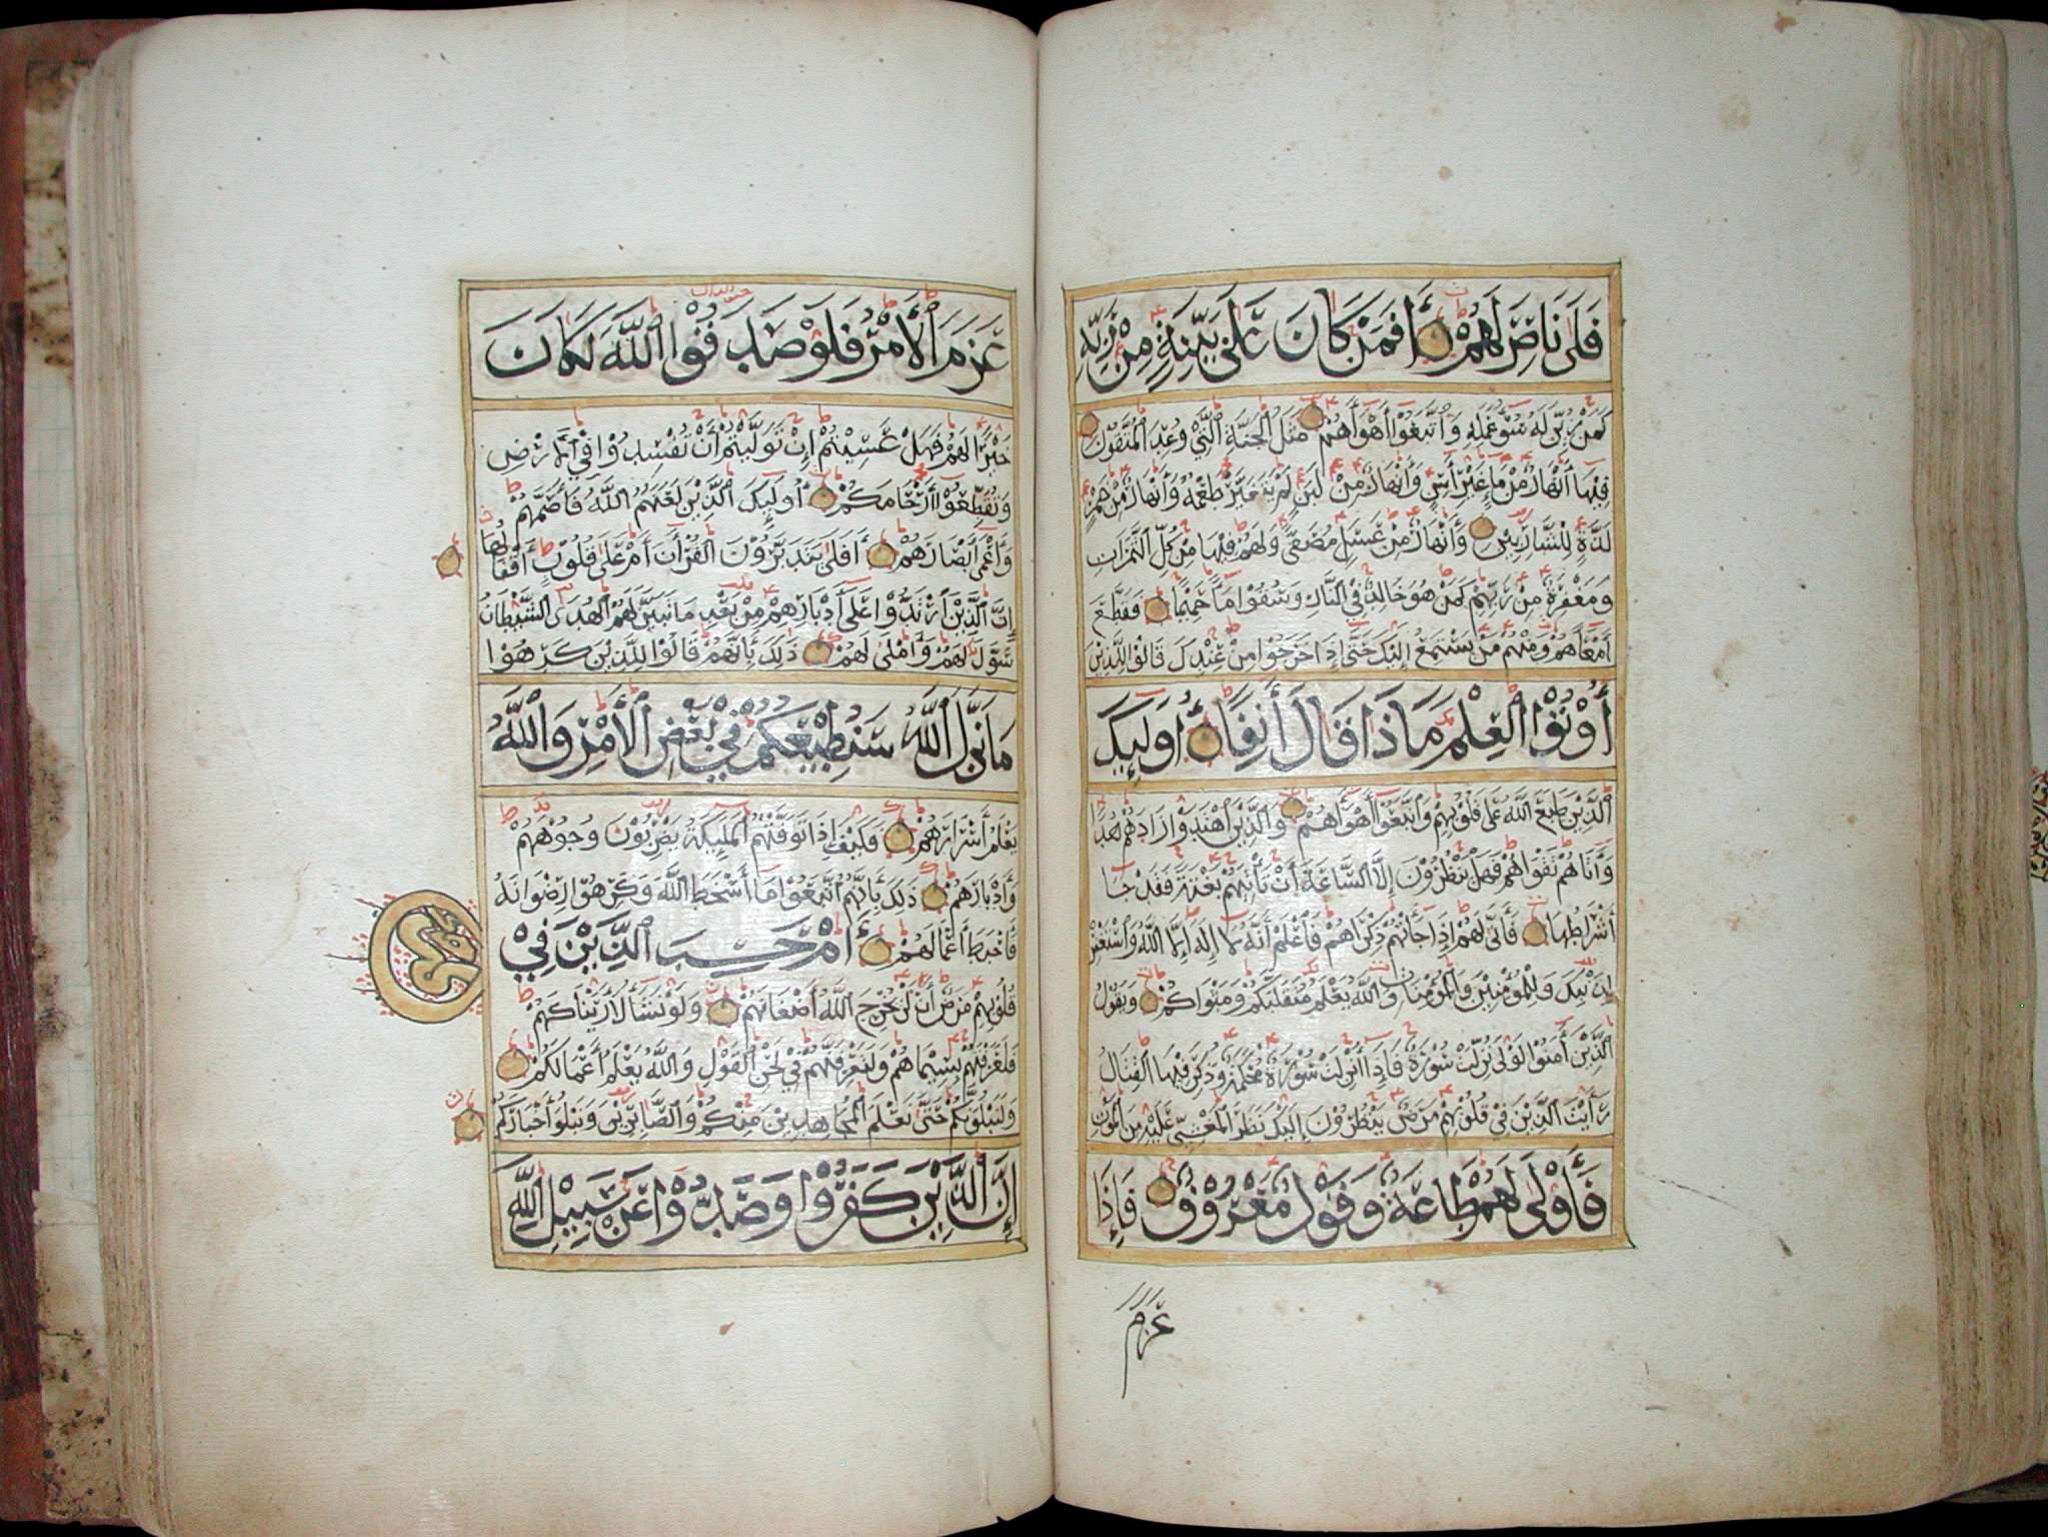 فَلَا نَاصِرَ لَهُمْ أَفَمَنْ كَانَ عَلَىٰ بَيِّنَةٍ مِنْ رَبِّهِ
كَمَنْ زُيِّنَ لَهُ سُوءُ عَمَلِهِ وَاتَّبَعُوا أَهْوَاءَهُمْ مَثَلُ الْجَنَّةِ الَّتِي وُعِدَ الْمُتَّقُونَ
فِيهَا أَنْهَارٌ مِنْ مَاءٍ غَيْرِ آسِنٍ وَأَنْهَارٌ مِنْ لَبَنٍ لَمْ يَتَغَيَّرْ طَعْمُهُ وَأَنْهَارٌ مِنْ خَمْرٍ
لَذَّةٍ لِلشَّارِبِينَ وَأَنْهَارٌ مِنْ عَسَلٍ مُصَفًّى وَلَهُمْ فِيهَا مِنْ كُلِّ الثَّمَرَاتِ
وَمَغْفِرَةٌ مِنْ رَبِّهِمْ كَمَنْ هُوَ خَالِدٌ فِي النَّارِ وَسُقُوا مَاءً حَمِيمًا فَقَطَّعَ
أَمْعَاءَهُمْ وَمِنْهُمْ مَنْ يَسْتَمِعُ إِلَيْكَ حَتَّىٰ إِذَا خَرَجُوا مِنْ عِنْدِكَ قَالُوا لِلَّذِينَ
أُوتُوا الْعِلْمَ مَاذَا قَالَ آنِفًا أُولَٰئِكَ
الَّذِينَ طَبَعَ اللَّهُ عَلَىٰ قُلُوبِهِمْ وَاتَّبَعُوا أَهْوَاءَهُمْ وَالَّذِينَ اهْتَدَوْا زَادَهُمْ هُدًى
وَآتَاهُمْ تَقْوَاهُمْ فَهَلْ يَنْظُرُونَ إِلَّا السَّاعَةَ أَنْ تَأْتِيَهُمْ بَغْتَةً فَقَدْ جَاءَ
أَشْرَاطُهَا فَأَنَّىٰ لَهُمْ إِذَا جَاءَتْهُمْ ذِكْرَاهُمْ فَاعْلَمْ أَنَّهُ لَا إِلَٰهَ إِلَّا اللَّهُ وَاسْتَغْفِرْ
لِذَنْبِكَ وَلِلْمُؤْمِنِينَ وَالْمُؤْمِنَاتِ وَاللَّهُ يَعْلَمُ مُتَقَلَّبَكُمْ وَمَثْوَاكُمْ وَيَقُولُ
الَّذِينَ آمَنُوا لَوْلَا نُزِّلَتْ سُورَةٌ فَإِذَا أُنْزِلَتْ سُورَةٌ مُحْكَمَةٌ وَذُكِرَ فِيهَا الْقِتَالُ
رَأَيْتَ الَّذِينَ فِي قُلُوبِهِمْ مَرَضٌ يَنْظُرُونَ إِلَيْكَ نَظَرَ الْمَغْشِيِّ عَلَيْهِ مِنَ الْمَوْتِ
فَأَوْلَىٰ لَهُمْ طَاعَةٌ وَقَوْلٌ مَعْرُوفٌ فَإِذَا
عَزَمَ
عَزَمَ الْأَمْرُ فَلَوْ صَدَقُوا اللَّهَ لَكَانَ
خَيْرًا لَهُمْ فَهَلْ عَسَيْتُمْ إِنْ تَوَلَّيْتُمْ أَنْ تُفْسِدُوا فِي الْأَرْضِ
وَتُقَطِّعُوا أَرْحَامَكُمْ أُولَٰئِكَ الَّذِينَ لَعَنَهُمُ اللَّهُ فَأَصَمَّهُمْ
وَأَعْمَىٰ أَبْصَارَهُمْ أَفَلَا يَتَدَبَّرُونَ الْقُرْآنَ أَمْ عَلَىٰ قُلُوبٍ أَقْفَالُهَا
إِنَّ الَّذِينَ ارْتَدُّوا عَلَىٰ أَدْبَارِهِمْ مِنْ بَعْدِ مَا تَبَيَّنَ لَهُمُ الْهُدَى الشَّيْطَانُ
سَوَّلَ لَهُمْ وَأَمْلَىٰ لَهُمْ ذَٰلِكَ بِأَنَّهُمْ قَالُوا لِلَّذِينَ كَرِهُوا
مَا نَزَّلَ اللَّهُ سَنُطِيعُكُمْ فِي بَعْضِ الْأَمْرِ وَاللَّهُ
يَعْلَمُ أَسْرَارَهُمْ فَكَيْفَ إِذَا تَوَفَّتْهُمُ الْمَلَائِكَةُ يَضْرِبُونَ وُجُوهَهُمْ
وَأَدْبَارَهُمْ ذَٰلِكَ بِأَنَّهُمُ اتَّبَعُوا مَا أَسْخَطَ اللَّهَ وَكَرِهُوا رِضْوَانَهُ
فَأَحْبَطَ أَعْمَالَهُمْ أَمْ حَسِبَ الَّذِينَ فِي
قُلُوبِهِمْ مَرَضٌ أَنْ لَنْ يُخْرِجَ اللَّهُ أَضْغَانَهُمْ وَلَوْ نَشَاءُ لَأَرَيْنَاكَهُمْ
فَلَعَرَفْتَهُمْ بِسِيمَاهُمْ وَلَتَعْرِفَنَّهُمْ فِي لَحْنِ الْقَوْلِ وَاللَّهُ يَعْلَمُ أَعْمَالَكُمْ
وَلَنَبْلُوَنَّكُمْ حَتَّىٰ نَعْلَمَ الْمُجَاهِدِينَ مِنْكُمْ وَالصَّابِرِينَ وَنَبْلُوَ أَخْبَارَكُمْ
إِنَّ الَّذِينَ كَفَرُوا وَصَدُّوا عَنْ سَبِيلِ اللَّهِ